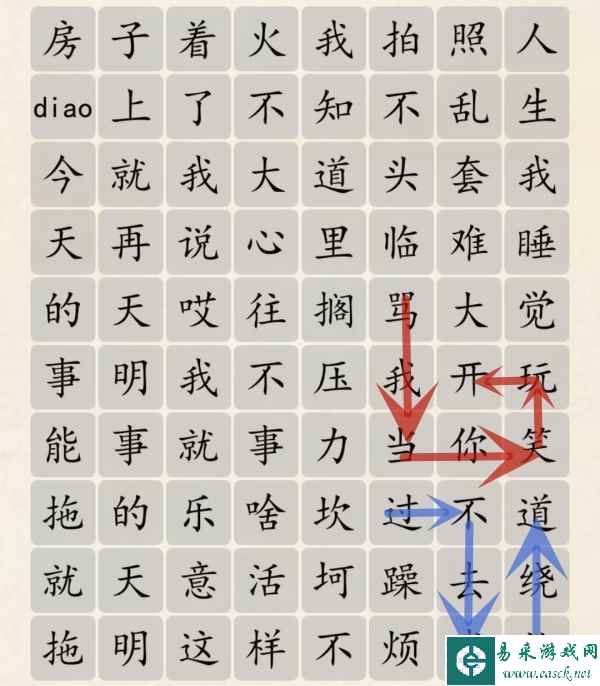 房子着火我拍照人
diao上了不知不乱生
今就我大道头套我
天再说心里临难睡
的天哎往搁骂大觉
事明我不压我开玩
能事就事力当你笑
拖的乐啥坎过不道
就天意活坷躁去绕
拖明这样不烦
易采游戏网
www.easck.net